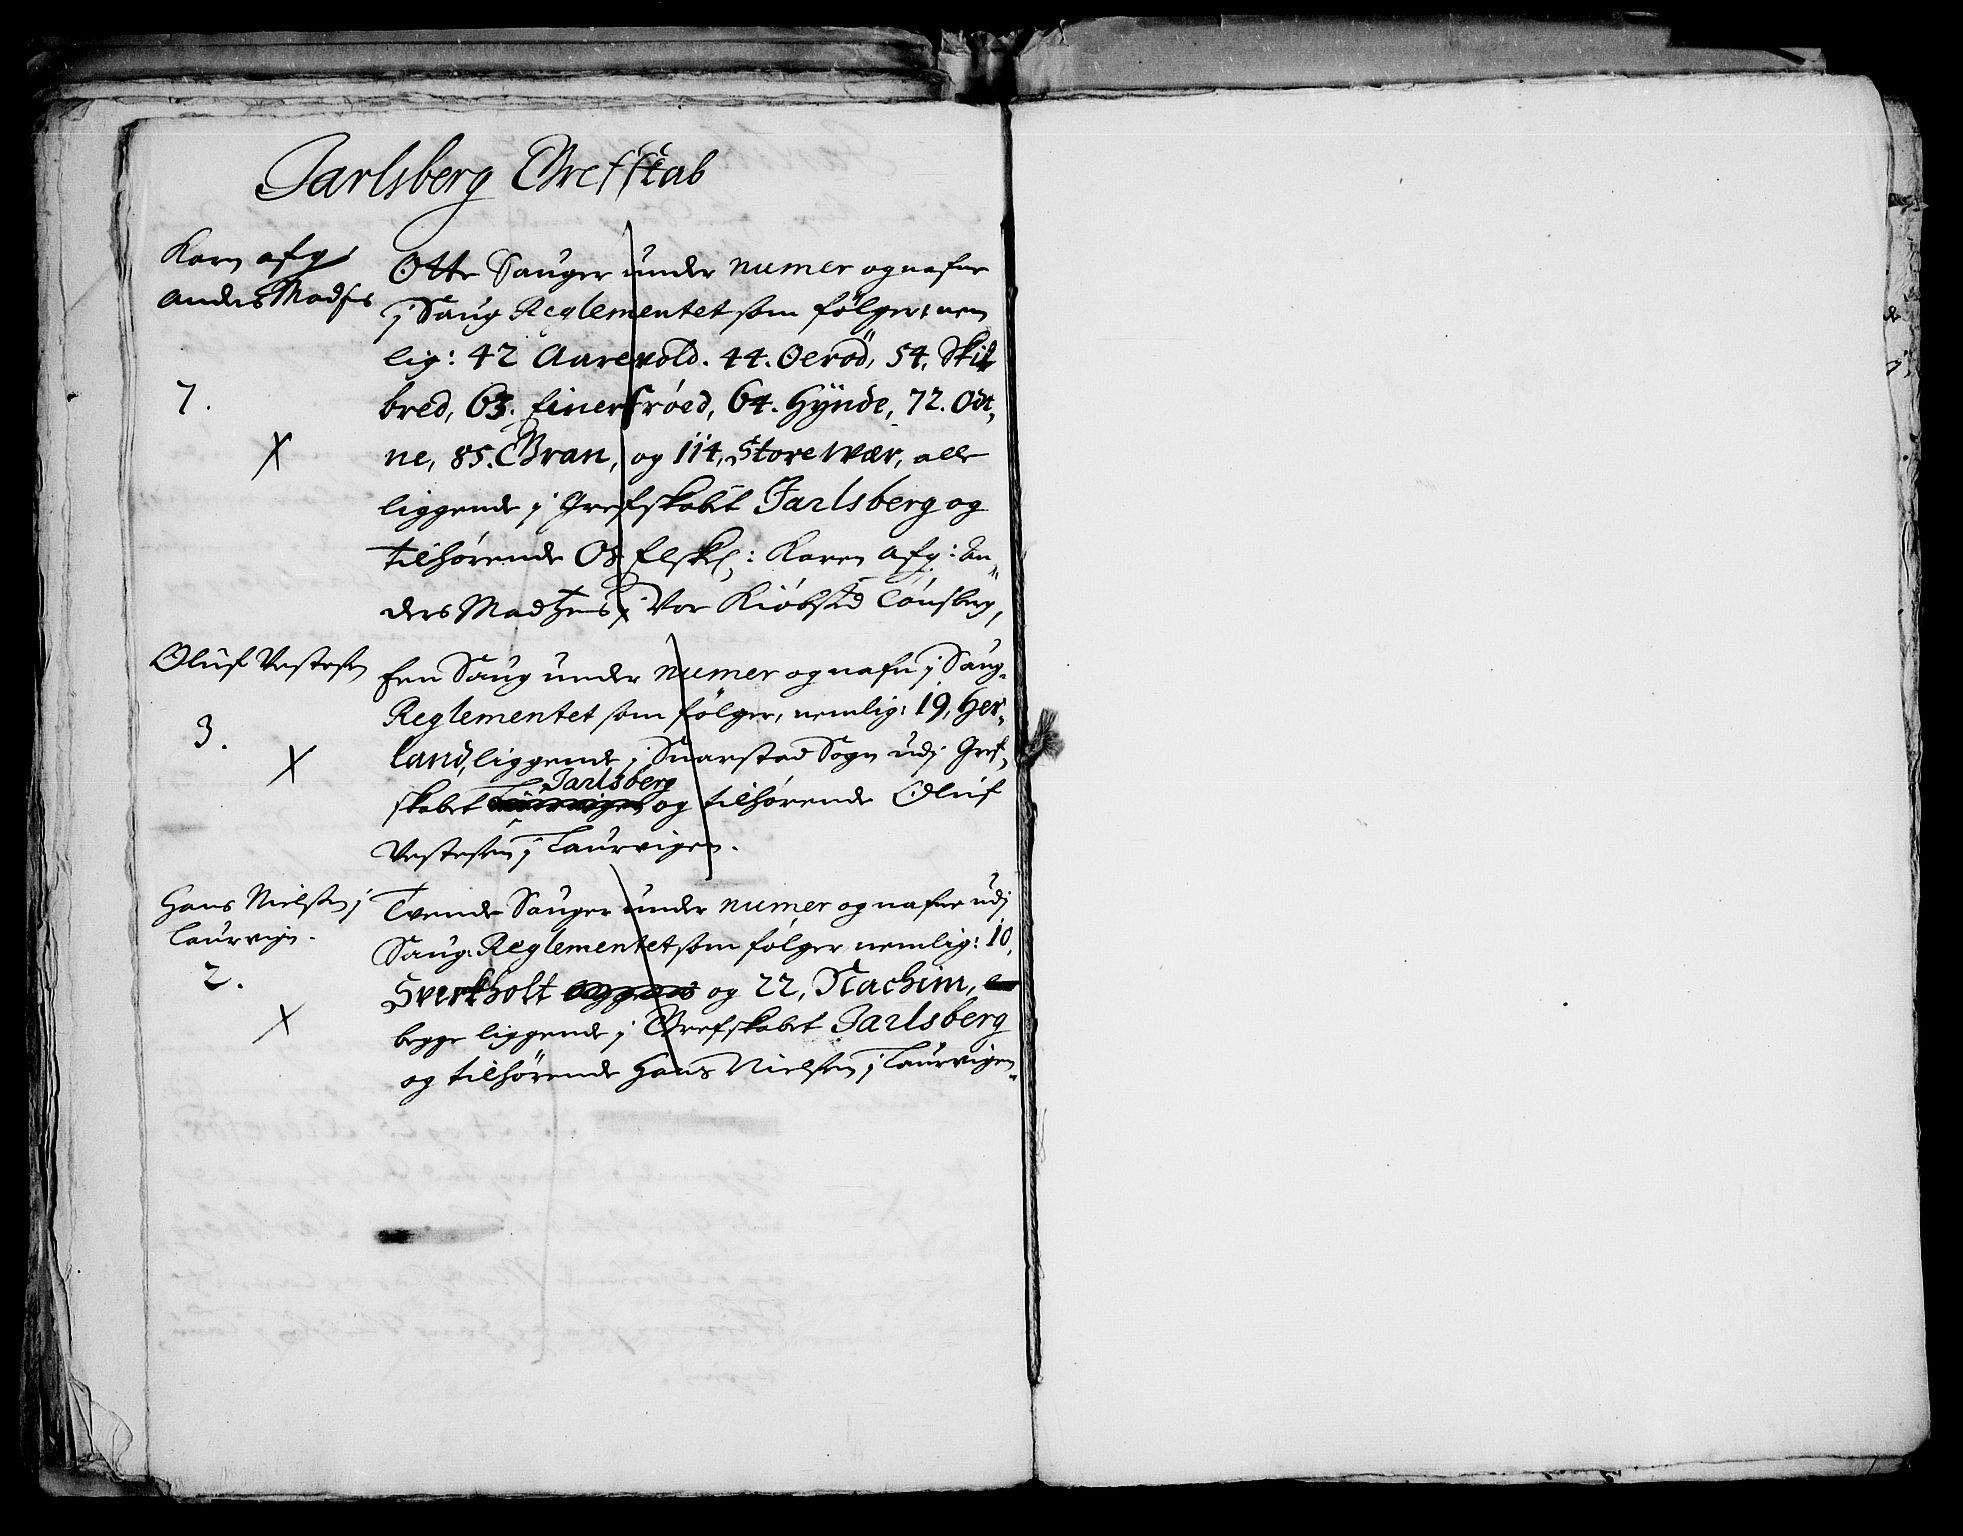 Jarlsberg Grefskab
Karn afg
Anders Madses
7.
X
Otte Sauger under numer og nafne
j Saug Reglementet som følger, nem
lig: 42 Aarevold. 44. Oerød, 54. Skil
bred, 63. Einersrøed, 64. Hÿnde, 72. Odt-
ne, 85. Gran, og 114. Store Wær, alle
liggende j Grefskabet Jarlsberg og
tilhørende Os Elskl: Karen afg: An-
ders Madtzens j Vor Kiøbsted Tønsberg,
Oluf Vestesen
3.
X
Een Saug under numer og nafn j Saug-
Reglementet som følger, nemlig: 19, Her-
land, liggende j Suarstad Sogn udj Gref-
Jarlsberg
skabet og tilhørende Oluf
Vestesen j Laurvigen.
Hans Nielsen j
Laurvign.
2.
X
Tvende Sauger under numer og nafne udj
Saug-Reglementet som følger nemlig: 10,
Sverkholt og 22, Nachim,
begge liggende j Grefskabet Jarlsberg
og tilhørende Hans Nielsen j Laurvigen.